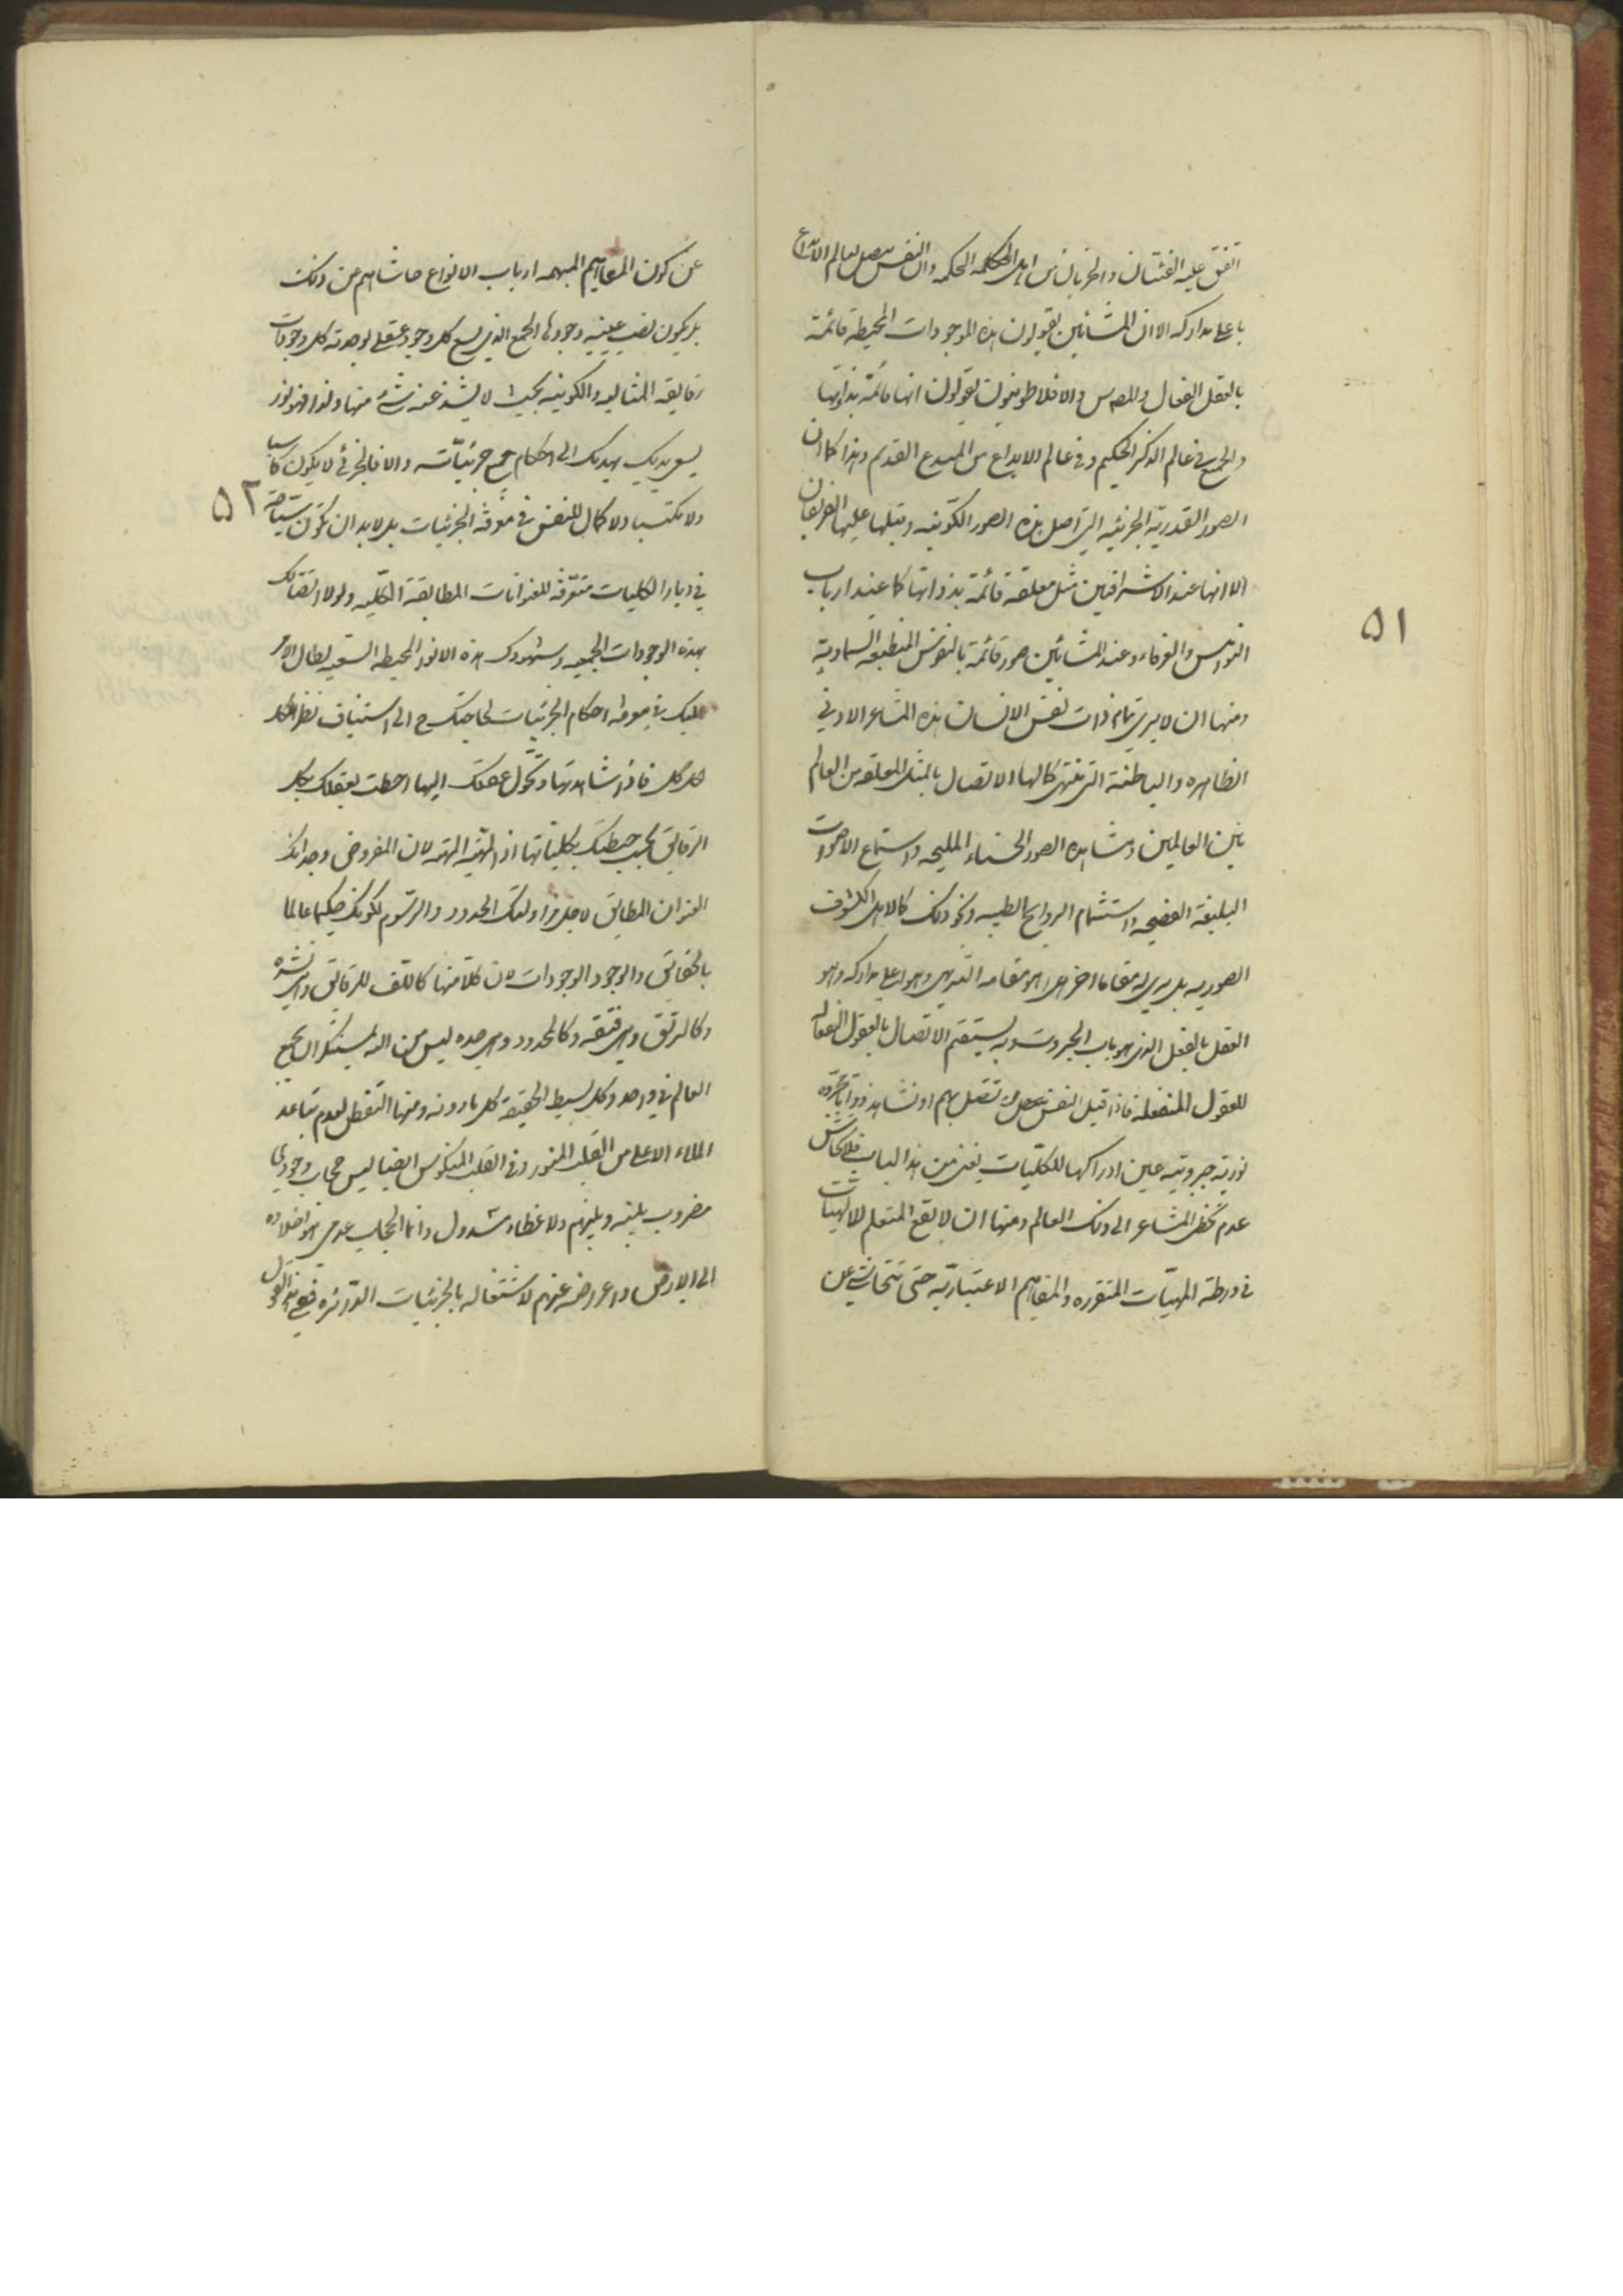 اتفق عليه الفئتان والحزبان من اهل الحكمة وان النفس يتصل لعالم الابداع
باعلى مداركه الا ان المشائين يقولون هذه الموجودات المحيطة قائمة
بالعقل الفعال والافلاطونيون يقولون انها قائمة بذواتها
والجميع في عالم الذكر الحكيم وفي عالم الابداع من المبدع القديم وهذا كما ان
الصور القدرية الجزئية التي اصل هذه الصور الكونية وقبلها عليها الفريقان
الا انها عند الاشراقيين مثل معلقة قائمة بذواتها كما عند ارباب
النواميس والعرفاء وعند المشائين صور قائمة بالنفوس المنطبعة السماوية
ومنها ان لا يرى تمام ذات نفس الانسان هذه المشاعر الادنى
الظاهره والباطنة التي منتهى كمالها الاتصال بالمثل المعلقه من العالم
بين العالمين ومشاهده الصور الحسناء المليحه واستماع الاصوات
البليغة الفصيحه واستشمام الروايح الطيبه ونحو ذلك كما لاهل الكشوف
الصوريه بل يرى له مقاما اخر هو مقامه القدسي وهو اعلى مداركه وهو
العقل بالفعل الذي هو باب الجبروت وبه يستقيم الاتصال بالعقول الفعاله
للعقول المنفعله فاذا قيل النفس تتصل بهم او تشاهد ذواتا مجرّده
نوريه جبروتيه عين ادراكها للكليّات يعنى من هذا الباب فلا تحاش
عدم تخطى المشاعر الى ذلك العالم ومنها ان لا يقع المتعلم للالهيات
في ورطة المهيّات المتقرره والمفاهيم الاعتباريّه حتى تتحاشى عن
۵۱
عن كون المفاهيم المبهمه ارباب الانواع حاشاهم عن ذلك
بل يكون نصب عينيه وجودها الجمعي الذي يسع كل وجود عقلي لوحدته كل وجودات
رقايقه المثاليه والكونيه بحيث لا يشذ عنه شئ منها ولذا فهو نور
يسعى بين يديك يهديك الى احكام جميع جزئيّاته والا فالجزئي لا يكون كاسبا
ولا مكتسبا ولا كمال للنفس في معرفة الجزئيات بل لا بد ان تكون سياحة
۵۲
في ديار الكليات متعرّفة للعنوانات المطابقة الكلّيه ولولا اتصالك
بهذه الوجودات الجمعيه وشهودك هذه الانوار المحيطه السعيه لطال الامر
عليك في معرفة احكام الجزئيات لحاجتك ح الى استيناف نظر لكل
كل كل فاذا شاهدتها وتحوّل عقلك اليها احطت بعقلك بكل
الرقايق بحسب حيطتك بكلياتها اذ المهيّة المهيّة لان المفروض وجدانك
العنوان المطابق لاجل مزاولتك الحدود والرسوم لكونك حكيما عالما
بالحقائق والوجود الوجودات لان كلا منها كاللف للرقايق وهي نشره
وكالرتق وهي فتقه وكالمحدود وهي حده ليس من الله بمستنكر ان يجمع
العالم في واحد وكل بسيط الحقيقة كل ما دونه ومنها التفطن لعدم تباعد
الملاء الاعلى من القلب المنور وفي القلب المنكوس ايضا ليس حجاب وجودي
مضروب بينه وبينهم ولا غطاء مسدول وانما الحجاب عدمي هو اخلاده
الى الارض واعراضه عنهم لاشتغاله بالجزئيات الدّاثره